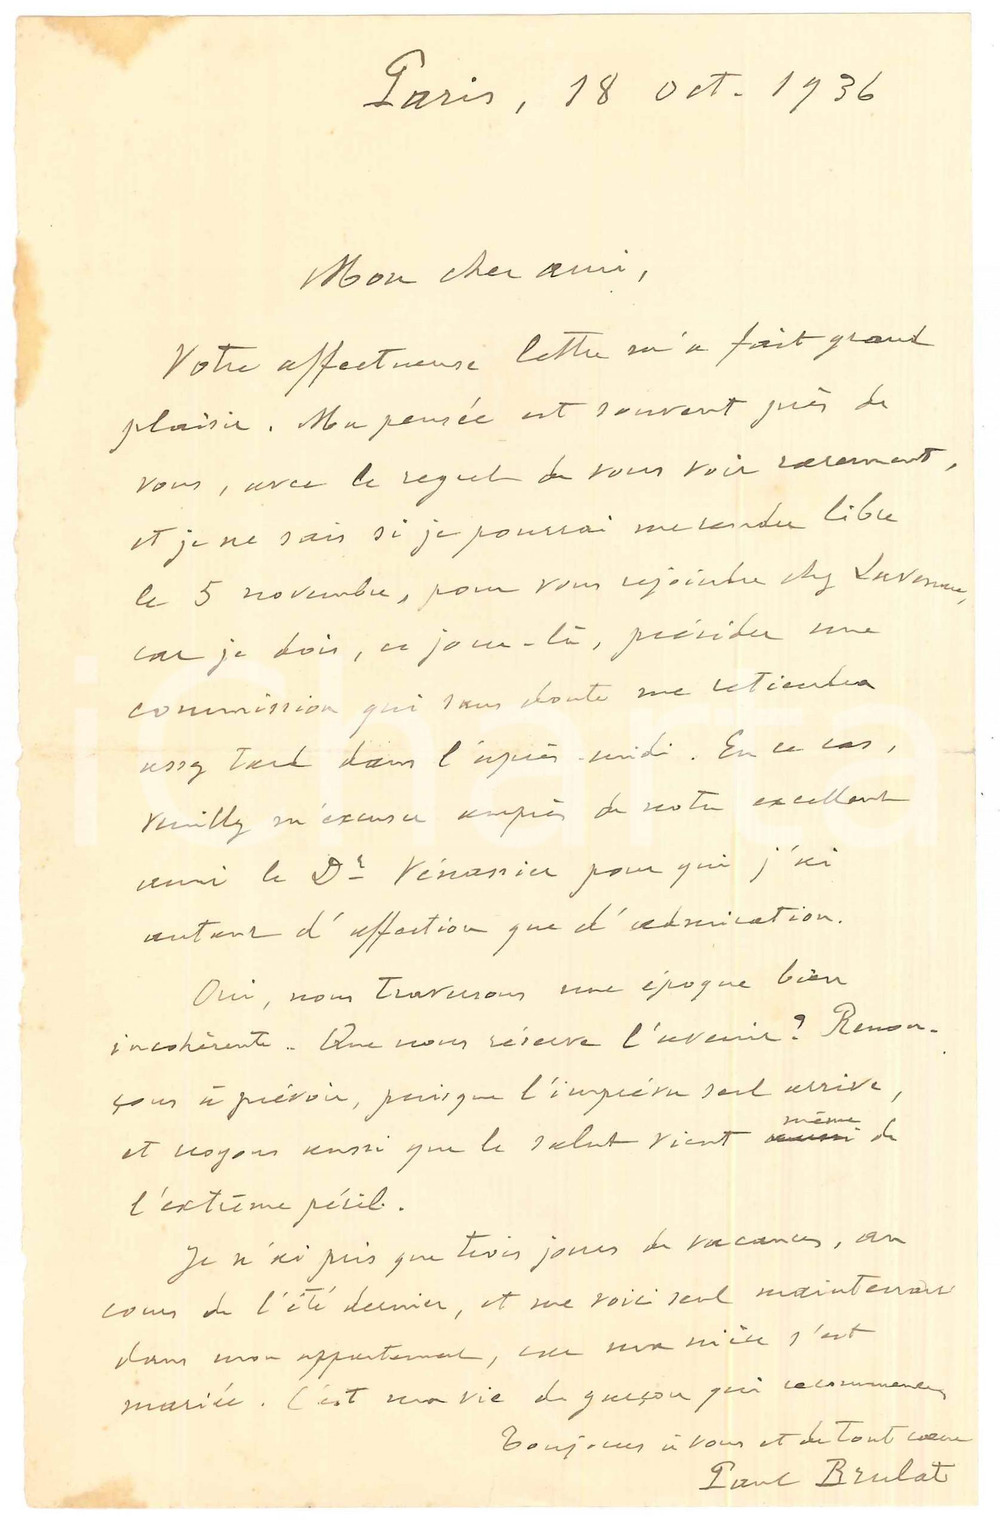 Paris, 18 oct. 1936
Mon cher ami,
Votre affectueuse lettre m'a fait grand
plaisir. Ma pensée est souvent près de
vous, avec le regret de vous voir rarement,
et je ne sais si je pourrai me rendre libre
le 5 novembre, pour vous rejoindre chez Lavenue,
car je dois, ce jour-là, présider une
commission qui sans doute me retiendra
assez tard dans l'après-midi. En ce cas,
veuillez m'excuser auprès de notre excellent
ami le Dr Vénassier pour qui j'ai
autant d'affection que d'admiration.
Oui, nous traversons une époque bien
incohérente.. Que nous réserve l'avenir? Renon-
çons à prévoir, puisque l'imprévu seul arrive,
et voyons aussi que le salut vient aussi même de
l'extrême péril.
Je n'ai pris que trois jours de vacances, au
cours de l'été dernier, et me voici seul maintenant
dans mon appartement, car ma nièce s'est
mariée. C'est ma vie de garçon qui recommence
Toujours à vous et de tout cœur
Paul Brulat
iCharta